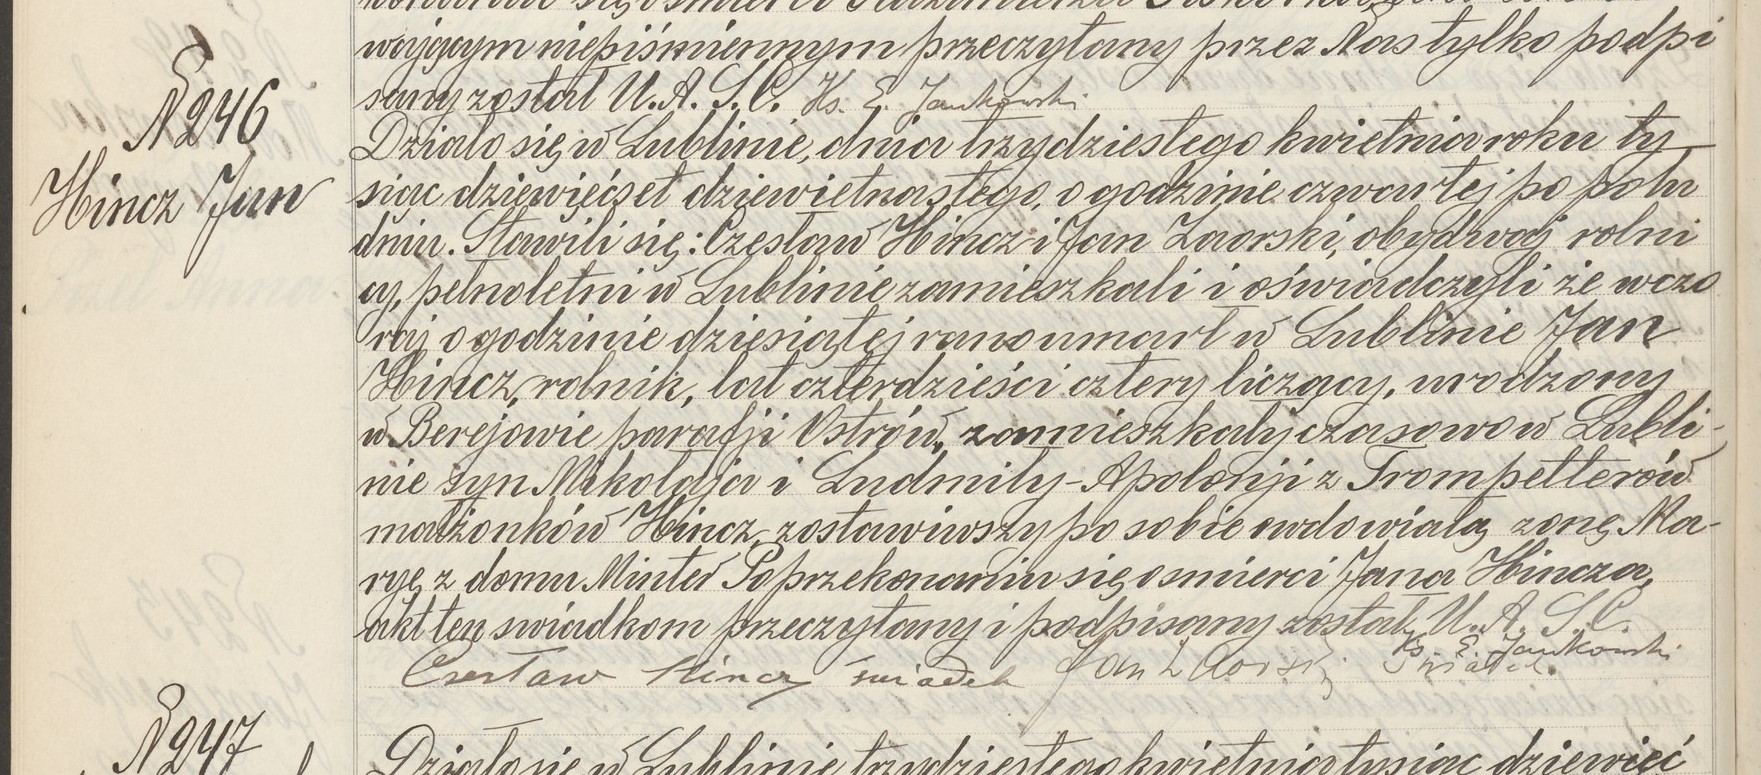 wającym niepiśmiennym przeczytany przez Nas tylko podpi
sany został U.A.S.C. Ks. E. Jankowski
N246
Hincz Jan
Działo się w Lublinie, dnia trzydziestego kwietnia roku ty
siąc dziewięćset dziewietnastego, o godzinie czwartej po połu
dniu. Stawili się: Czesław Hincz i Jan Zaorski, obydwaj rolni
cy, pełnoletni w Lublinie zamieszkali i oświadczyli że wczo
raj o godzinie dziesiątej rano umarł w Lublinie Jan
Hincz, rolnik, lat czterdzieści cztery liczący, urodzony
w Berejowie parafji Ostrów, zamieszkały czasowo w Lubli-
nie syn Mikołaja i Ludmiły-Apolonji z Trompetterów
małżonków Hincz, zostawiwszy po sobie owdowiałą żonę Ma-
ryę z domu Minter Po przekonaniu się o śmierci Jana Hincza,
akt ten świadkom przeczytany i podpisany został, U.A.S.C.
Ks. E. Jankowski
Czesław Hincz świadek Jan Zaorski Świadek.
N247
Działo się w Lublinie trzydziestego kwietnia tysiąc dziewięć